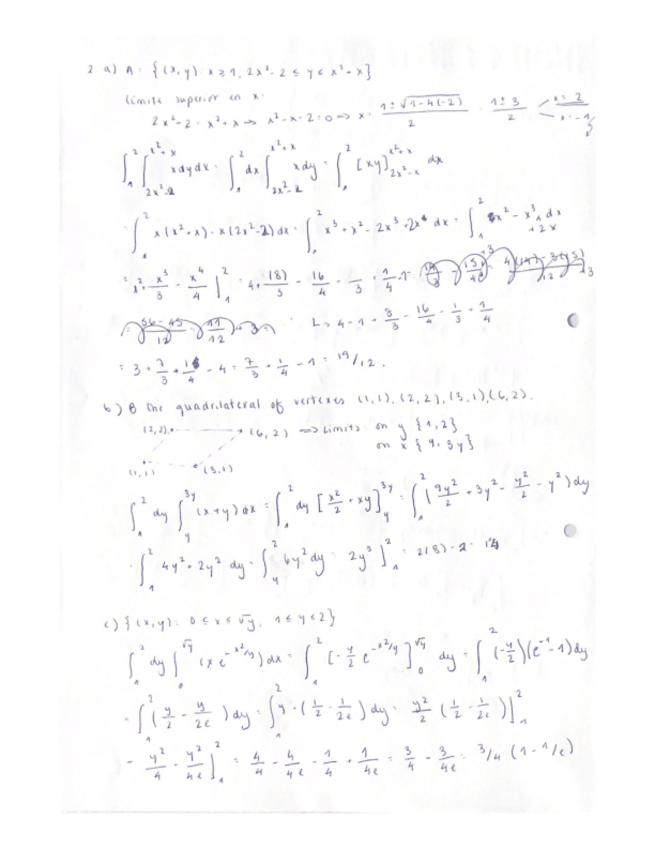 2 a) A = {(x, y) x ≥ 1, 2x² - 2 ≤ y ≤ x² + x}
Limite superior en x:
2x² - 2 = x² + x → x² - x - 2 = 0 ⇒ x = (1 ± √(1 - 4(-2)))/2 = (1 ± 3)/2 < x = 2, x = -1
∫₁² ∫_{2x²-2}^{x²+x} x dy dx = ∫₁² dx ∫_{2x²-2}^{x²+x} x dy = ∫₁² [xy]_{2x²-x}^{x²+x} dx
= ∫₁² x(x² + x) - x(2x² - 2) dx = ∫₁² x³ + x² - 2x³ + 2x dx = ∫₁² x² - x³ + 2x dx
= x² + x³/3 - x⁴/4 |₁² = 4 + (8)/3 - 16/4 - 1/3 + 1/4 - 1
= 4 - 1 + 8/3 - 16/4 - 1/3 + 1/4
= 3 + 7/3 + 1/4 - 4 = 7/3 + 1/4 - 1 = 19/12.
b) B the quadrilateral of vertexes (1,1), (2,2), (3,1), (6,2).
(2,2) (6,2) ⇒ Limits on y {1,2}
on x {y, 3y}
(1,1) (3,1)
∫₁² dy ∫_y^{3y} (x+y) dx = ∫₁² dy [x²/2 + xy]_y^{3y} = ∫₁² (9y²/2 + 3y² - y²/2 - y²) dy
= ∫₁² 4y² + 2y² dy = ∫_y² 6y² dy = 2y³ ]₁² = 2(8) - 2 = 14
c) {(x, y): 0 ≤ x ≤ √y, 1 ≤ y ≤ 2}
∫₁² dy ∫₀^{√y} (x e^{-x²/y}) dx = ∫₁² [-y/2 e^{-x²/y}]₀^{√y} dy = ∫₁² (-y/2)(e⁻¹ - 1) dy
= ∫₁² (y/2 - y/2e) dy = ∫₁² y · (1/2 - 1/2e) dy = y²/2 (1/2 - 1/2e) |₁²
= y²/4 - y²/4e |₁² = 4/4 - 4/4e - 1/4 + 1/4e = 3/4 - 3/4e = 3/4 (1 - 1/e)